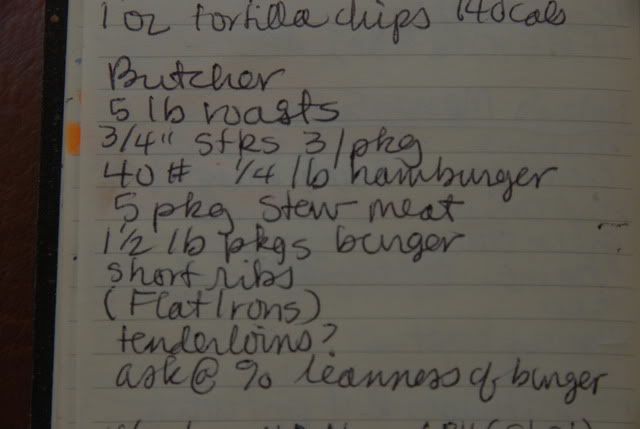 1 oz tortilla chips 140 cals
Butcher
5 lb roasts
3/4" stks 3/pkg
40 # 1/4 lb hamburger
5 pkg stew meat
1 1/2 lb pkgs burger
short ribs
(Flat Irons)
tenderloins?
ask @ % leanness of burger